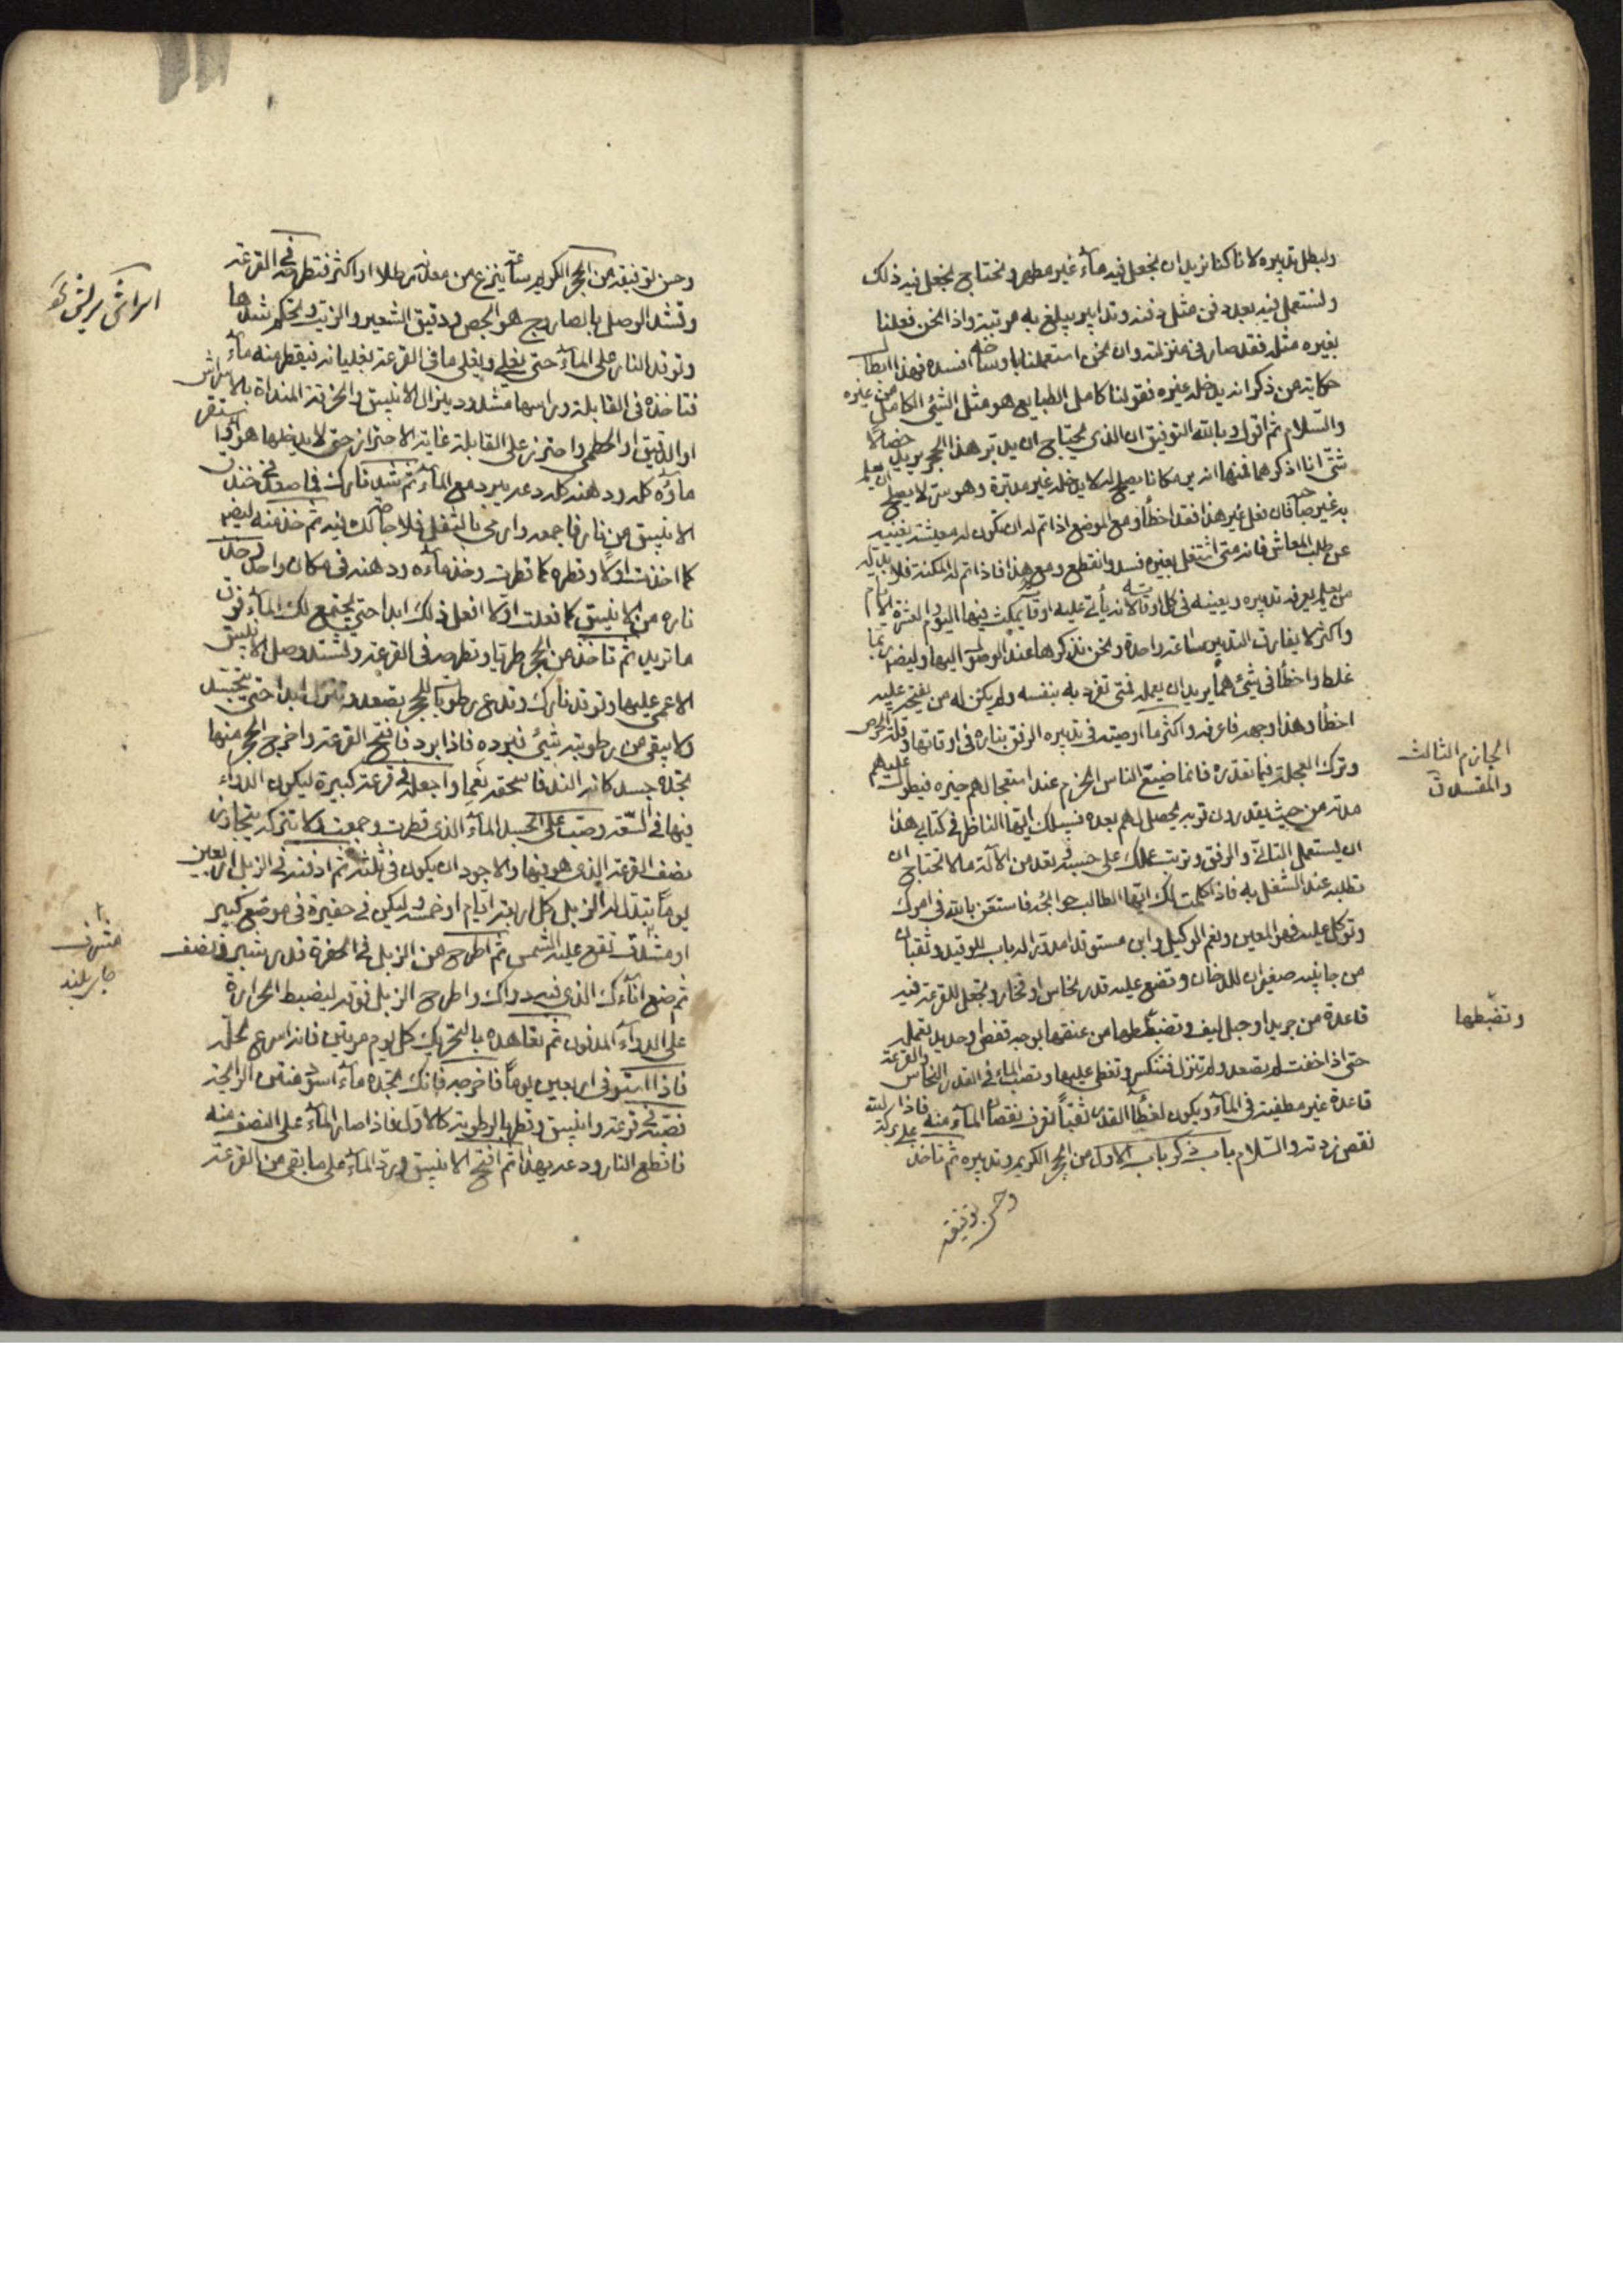 ولبطل تدبيره لانا كنا نريد ان نجعل فيه ماء غير مطهر ونحتاج نجعل فيه ذلك
ولنستعمل فيه بعد دفن مثل دفنه وتدابير يبلغ به مرتبته واذا نحن فعلنا
بغيره مثله فقد صار في منزلته وان نحن استعملناه باوساخه افسده فهذا ابطال
حكاية من ذكر انه يدخله غيره فقولنا كامل الطبايع هو مثل الشئ الكامل من غيره
والسلام ثم اقول وبالله التوفيق ان الذي يحتاج ان يدبر هذا الحجر يريد خصالا
شتى انا اذكرها فمنها انه يريد مكانا يصلح له لا يدخله غير مدبره وهو سر لا يصلح ان يعلم
به غير صاحبه فان فعل غير هذا فقد اخطأ ومع الموضع اذا تم له ان تكون له معيشة تغنيه
عن طلب المعاش فانه متى اشتغل بغيره فسد وانقطع ومع هذا فاذا تم له المكنة فلا بد له
من معلم يعرفه تدبيره ويعينه في كل اوقاته لانه يأتي عليه اوقات يمكث فيها اليوم والعشرة الايام
واكثر لا يفارق التدبير ساعة واحدة ونحن نذكرها عند الوصول اليها وايضا ربما
غلط واخطأ في شئ مما يريد ان يعمله فمتى تفرد به بنفسه ولم يكن له من يفتح عليه
اخطأ وهذا وجهه فاعرفه واكثر ما اوصيته في تدبيره الرفق بناره في اوقاتها وقلة الحرص
وترك العجلة فيما نقدره فانما ضيع الناس الحزم عند استعجالهم خيره فيطول عليهم
مدته من حيث يقدرون قربه يحصل لهم بعده فسبيلك ايها الناظر في كتابي هذا
ان يستعمل التأني والرفق وترتب عملك على حسبه وتعد من الآلة ما لا تحتاج ان
تطلبه عند الشغل به فاذا كملت لك ايها الطالب حوائجه فاستعن بالله في امرك
وتوكل عليه فهو المعين ونعم الوكيل وابن مستوقدا مدورا له باب للوقيد وثقبان
من جانبيه صغيران للدخان وتضع عليه قدر نحاس او فخار وتجعل للقرعة فيه
قاعدة من جريد او حبل ليف وتضبطها من عنقها بوجه قفص او حديد تعمله
حتى اذا خفت لم تصعد ولم تنزل فتنكسر وتغطي عليها وتصب الماء في القدر النحاس والقرعة
قاعدة غير مطفية في الماء ويكون لغطاء القدر ثقبا تعرف نقصان الماء منه فاذا رايته
نقص زدته والسلام باب ذكر باب الاول من الحجر الكريم وتدبيره ثم تأخذ على بركة
وحسن توفيقه
الجازم الثالث
والمفسدة
وتضبطها
وحسن توفيقه من الحجر الكريم ساعة ينزع من معدنه رطلا او اكثر فتطرحه في القرعة
وتشد الوصل بالصاروج هو الجص ودقيق الشعير والزيت وتحكم شدها
وتوقد النار على الماء حتى يغلي ويغلي ما في القرعة بغليانه فيقطر منه ماء
فتاخذه في القابلة وراسها مشدود ينزال الانبيق والخرقة المنداة بالاسراس
او الدقيق او الخطمي واحترز على القابلة غاية الاحتراز حتى لا يدخلها هواء
ماؤه كله ودهنه كله وعد يبرد مع الماء ثم شد نارك في صعد فخذ
الانبيق من نار فاجمعه وارمي بالثفل فلا حاجة لك فيه ثم خذ منه ايضا
كما اخذت اولا وقطره كما قطرت وخذ ماءه ودهنه في مكان واحد
ناره من الانبيق كما فعلت اولا افعل ذلك ابدا حتى يجتمع لك الماء فوق
ما تريد ثم تاخذ من الحجر طريا وتطرحه في القرعة وتشد وصل الانبيق
الاعمى عليها وتوقد نارك وتدع رطوبات الحجر تصعد وتنزل ابدا حتى يتجسد
ولا يبقى من رطوبته شئ فبرده فاذا برد فافتح القرعة واخرج الحجر منها
تجده جسد كانه الند فاسحقه نعما واجعله في قرعة كبيرة ليكون الدواء
فيها في السعة وصب على الجسد الماء الذي قطرت وجمعت ولا تتركه يتجاوز
نصف القرعة الذي هو فيها والاجود ان يكون في ثلثه ثم ادفنه في الزبل اربعين
يوما تبدل له الزبل كل اربعة ايام او خمسة وليكن في حفيرة في موضع كبير
او مشرق تقع عليه الشمس ثم اطرح من الزبل في الحفرة قدر شبر ونصف
ثم ضع اناءك الذي فيه دواك واطرح الزبل فوقه ليضبط الحرارة
على الدواء المدفون ثم تعاهده بالتحريك كل يوم مرتين فانه اسرع لحله
فاذا استوفى اربعين يوما فاخرجه فانك تجده ماء اسود منتن الرائحة
فصيره في قرعة وانبيق وقطره بالرطوبة كالاول فاذا صار الماء على النصف منه
فاقطع النار ودعه يهدا ثم افتح الانبيق ورد الماء على ما بقى من القرعة